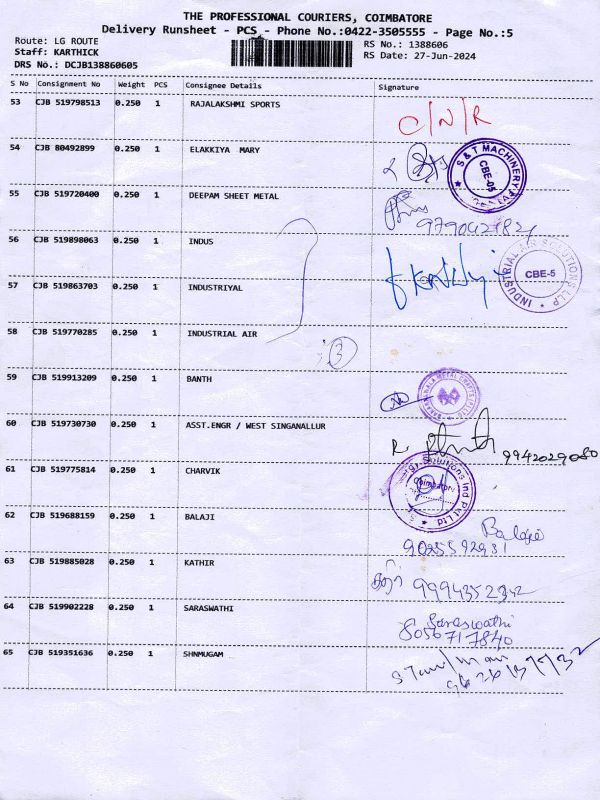 THE PROFESSIONAL COURIERS, COIMBATORE
Delivery Runsheet - PCS - Phone No.:0422-3505555 - Page No.:5
Route: LG ROUTE
Staff: KARTHICK
DRS No.: DCJB138860605
RS No.: 1388606
RS Date: 27-Jun-2024
S No Consignment No Weight PCS Consignee Details Signature
53 CJB 519798513 0.250 1 RAJALAKSHMI SPORTS C/N/R
54 CJB 80492899 0.250 1 ELAKKIYA MARY
S & T MACHINERY CBE-05
55 CJB 519720400 0.250 1 DEEPAM SHEET METAL
56 CJB 519898063 0.250 1 INDUS
57 CJB 519863703 0.250 1 INDUSTRIYAL
INDUSTRIAL AIR SOLUTIONS LLP CBE-5
58 CJB 519770285 0.250 1 INDUSTRIAL AIR
3
59 CJB 519913209 0.250 1 BANTH
60 CJB 519730730 0.250 1 ASST.ENGR / WEST SINGANALLUR
9942029080
61 CJB 519775814 0.250 1 CHARVIK
Solutions Ind Pvt Ltd Coimbatore
62 CJB 519688159 0.250 1 BALAJI
Balaji
9025592931
63 CJB 519885028 0.250 1 KATHIR
9994352342
64 CJB 519902228 0.250 1 SARASWATHI
Saraswathi
8056717840
65 CJB 519351636 0.250 1 SHNMUGAM